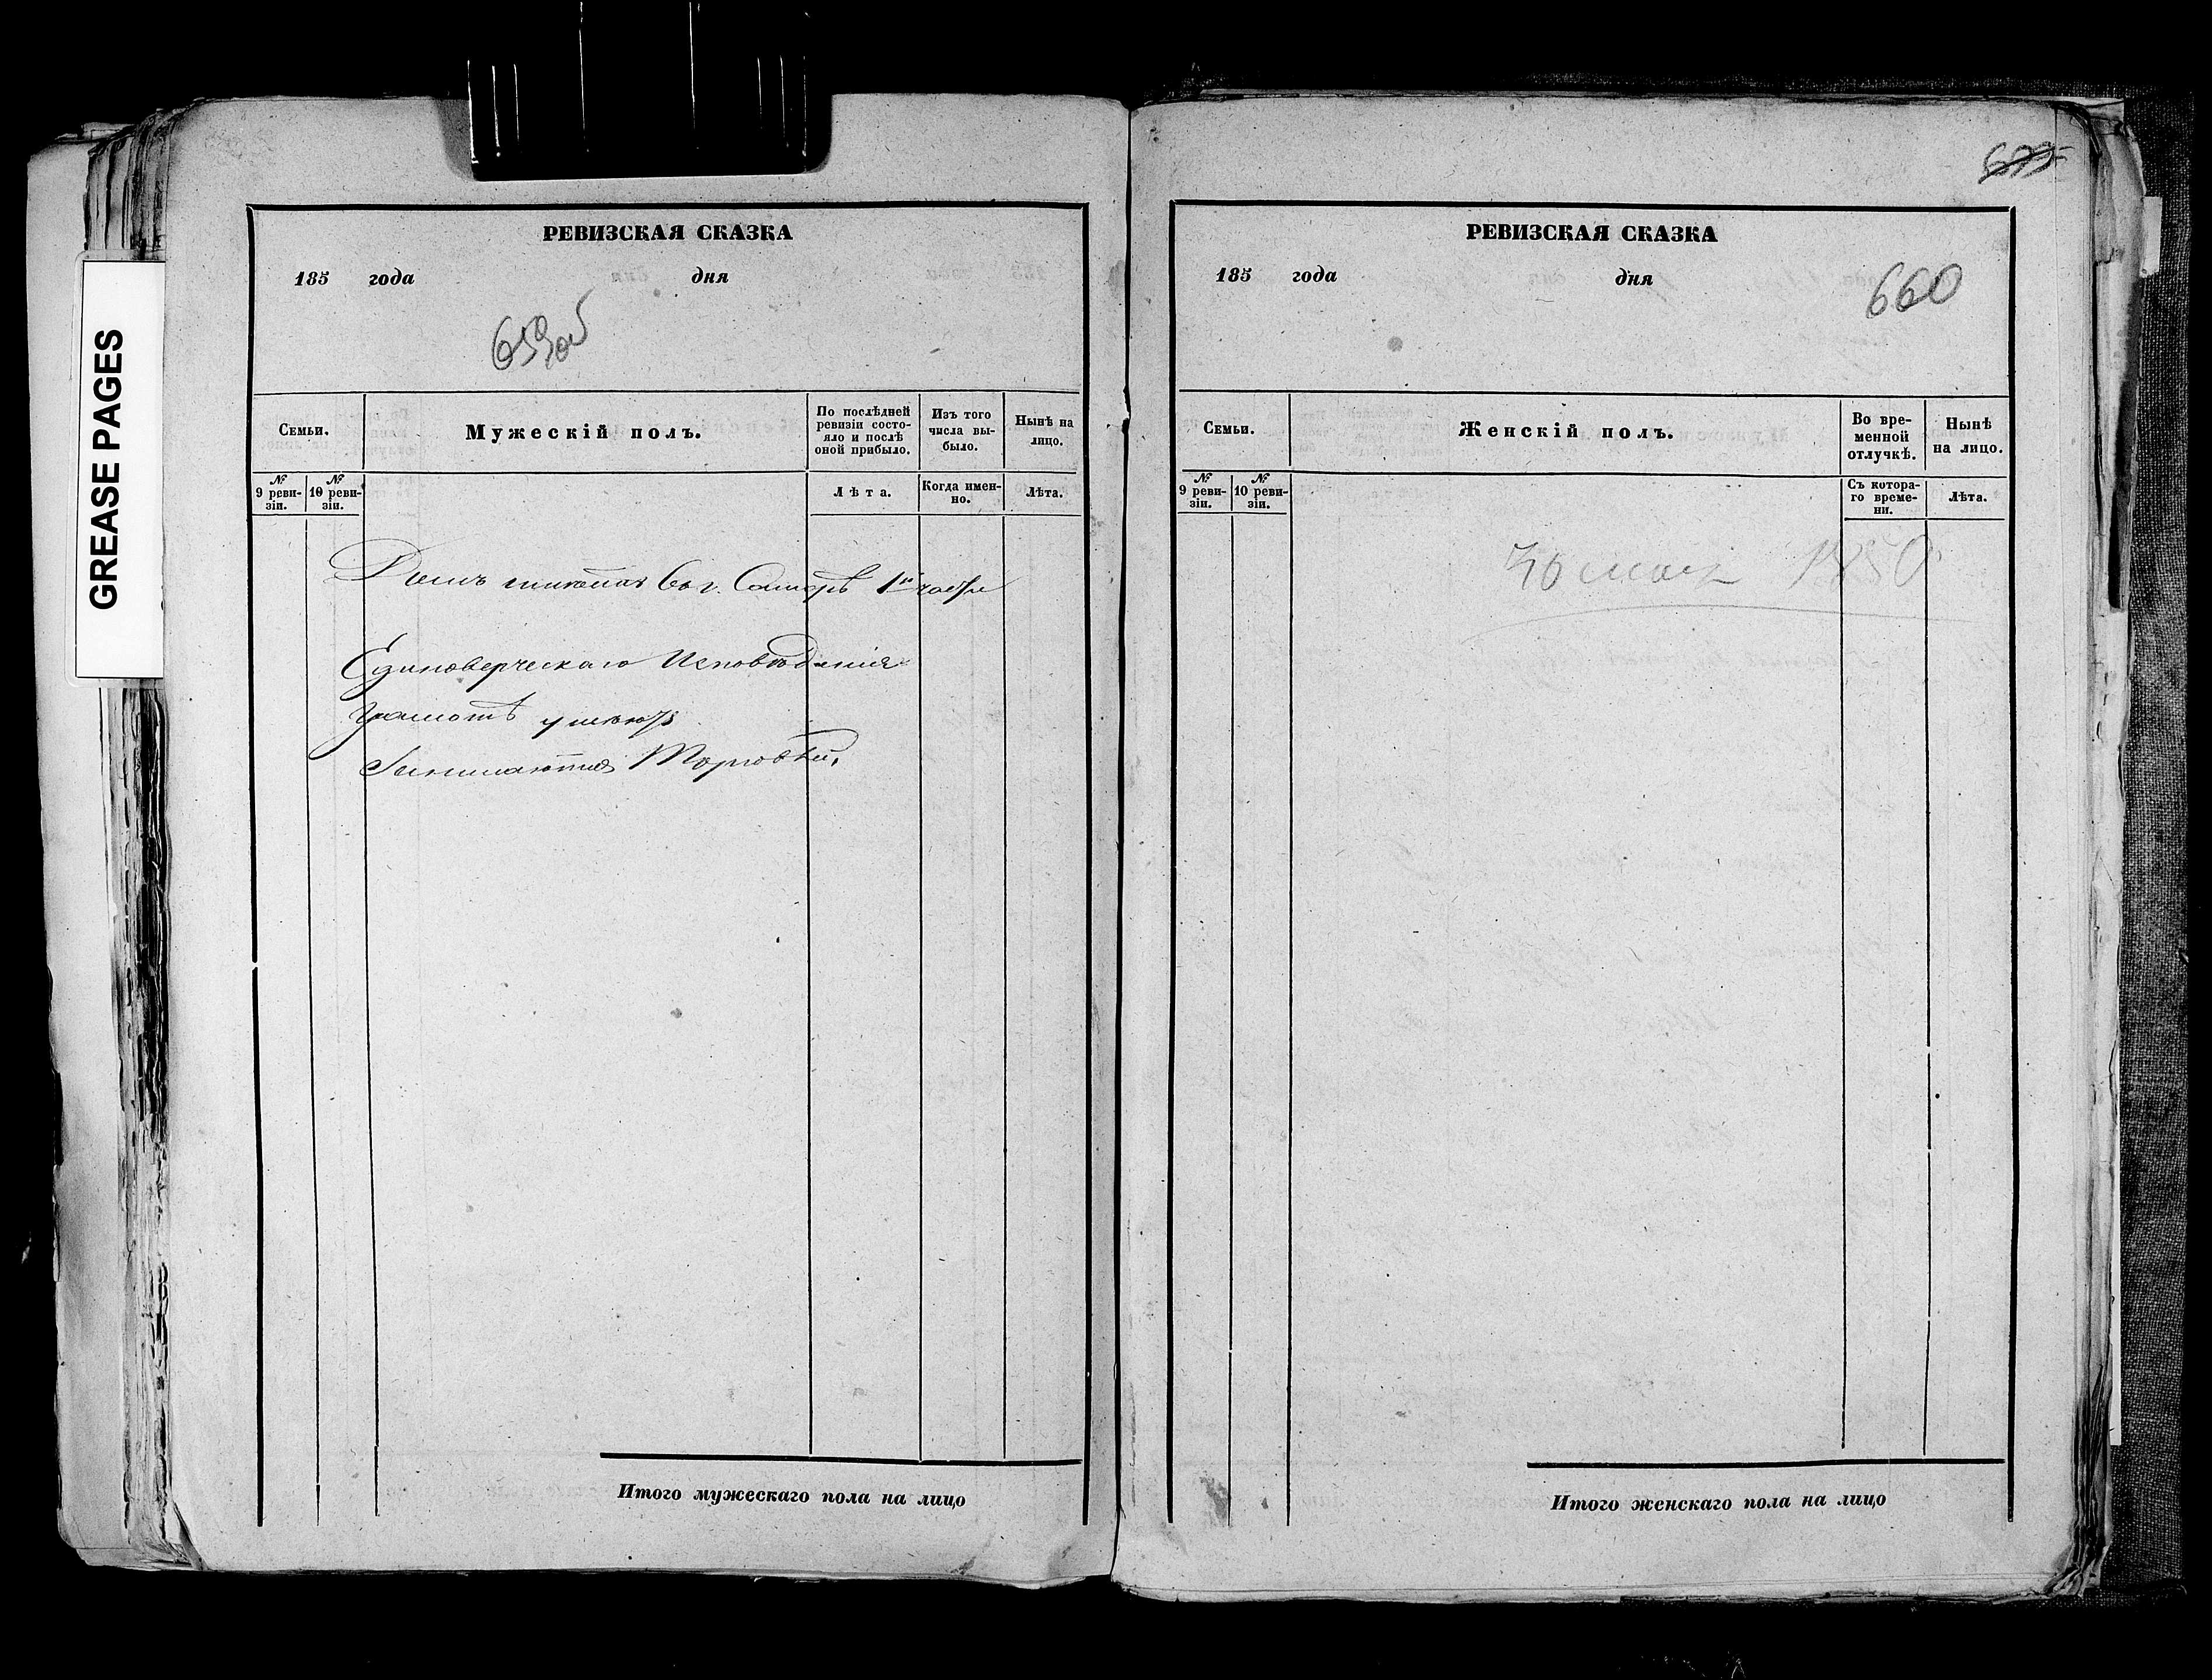 GREASE PAGES
РЕВИЗСКАЯ СКАЗКА
185 года дня
659об
Семьи.
Мужескій полъ.
По послѣдней ревизіи состо-
яло и послѣ
оной прибыло.
Изъ того
числа вы-
было.
Нынѣ на
лицо.
№
9 реви-
зіи.
№
10 реви-
зіи.
Лѣта.
Когда имен-
но.
Лѣта.
Домъ имеютъ въ г. Самарѣ 1й части
Единоверческаго Исповѣданія
Грамотѣ умеютъ
Занимаются Торговлей,
Итого мужескаго пола на лицо
675
РЕВИЗСКАЯ СКАЗКА
185 года дня
660
Семьи.
Женскій полъ.
Во вре-
менной
отлучкѣ.
Нынѣ
на лицо.
№
9 реви-
зіи.
№
10 реви-
зіи.
Съ котора-
го време-
ни.
Лѣта.
1850
Итого женскаго пола на лицо